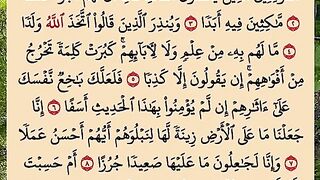 مَّٰكِثِينَ فِيهِ أَبَدًا ٣ وَيُنذِرَ ٱلَّذِينَ قَالُوا۟ ٱتَّخَذَ ٱللَّهُ وَلَدًا
٤ مَّا لَهُم بِهِۦ مِنْ عِلْمٍ وَلَا لِـَٔابَآئِهِمْ ۚ كَبُرَتْ كَلِمَةً تَخْرُجُ
مِنْ أَفْوَٰهِهِمْ ۚ إِن يَقُولُونَ إِلَّا كَذِبًا ٥ فَلَعَلَّكَ بَٰخِعٌ نَّفْسَكَ
عَلَىٰٓ ءَاثَٰرِهِمْ إِن لَّمْ يُؤْمِنُوا۟ بِهَٰذَا ٱلْحَدِيثِ أَسَفًا ٦ إِنَّا
جَعَلْنَا مَا عَلَى ٱلْأَرْضِ زِينَةً لَّهَا لِنَبْلُوَهُمْ أَيُّهُمْ أَحْسَنُ عَمَلًا
٧ وَإِنَّا لَجَٰعِلُونَ مَا عَلَيْهَا صَعِيدًا جُرُزًا ٨ أَمْ حَسِبْتَ